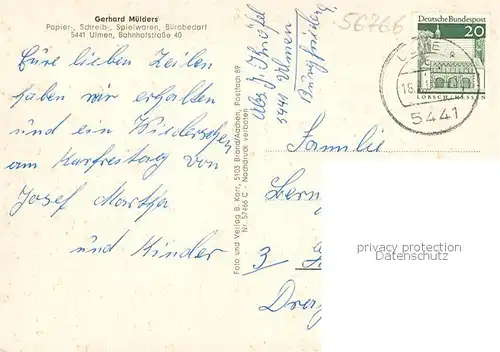 Gerhard Mülders
Papier-, Schreib-, Spielwaren, Bürobedarf
5441 Ulmen, Bahnhofstraße 40
Eure lieben Zeilen
haben wir erhalten
und ein Wiedersehen
am Karfreitag von
Josef Martha
und Kinder
Foto und Verlag B. Korr, 5103 Brand/Aachen, Postfach 89
Nr. 57466 C - Nachdruck verboten
Abs. J.
5441 Ulmen
56766
Deutsche Bundespost
20
LORSCH/HESSEN
5441
Familie
3
privacy protection
Datenschutz